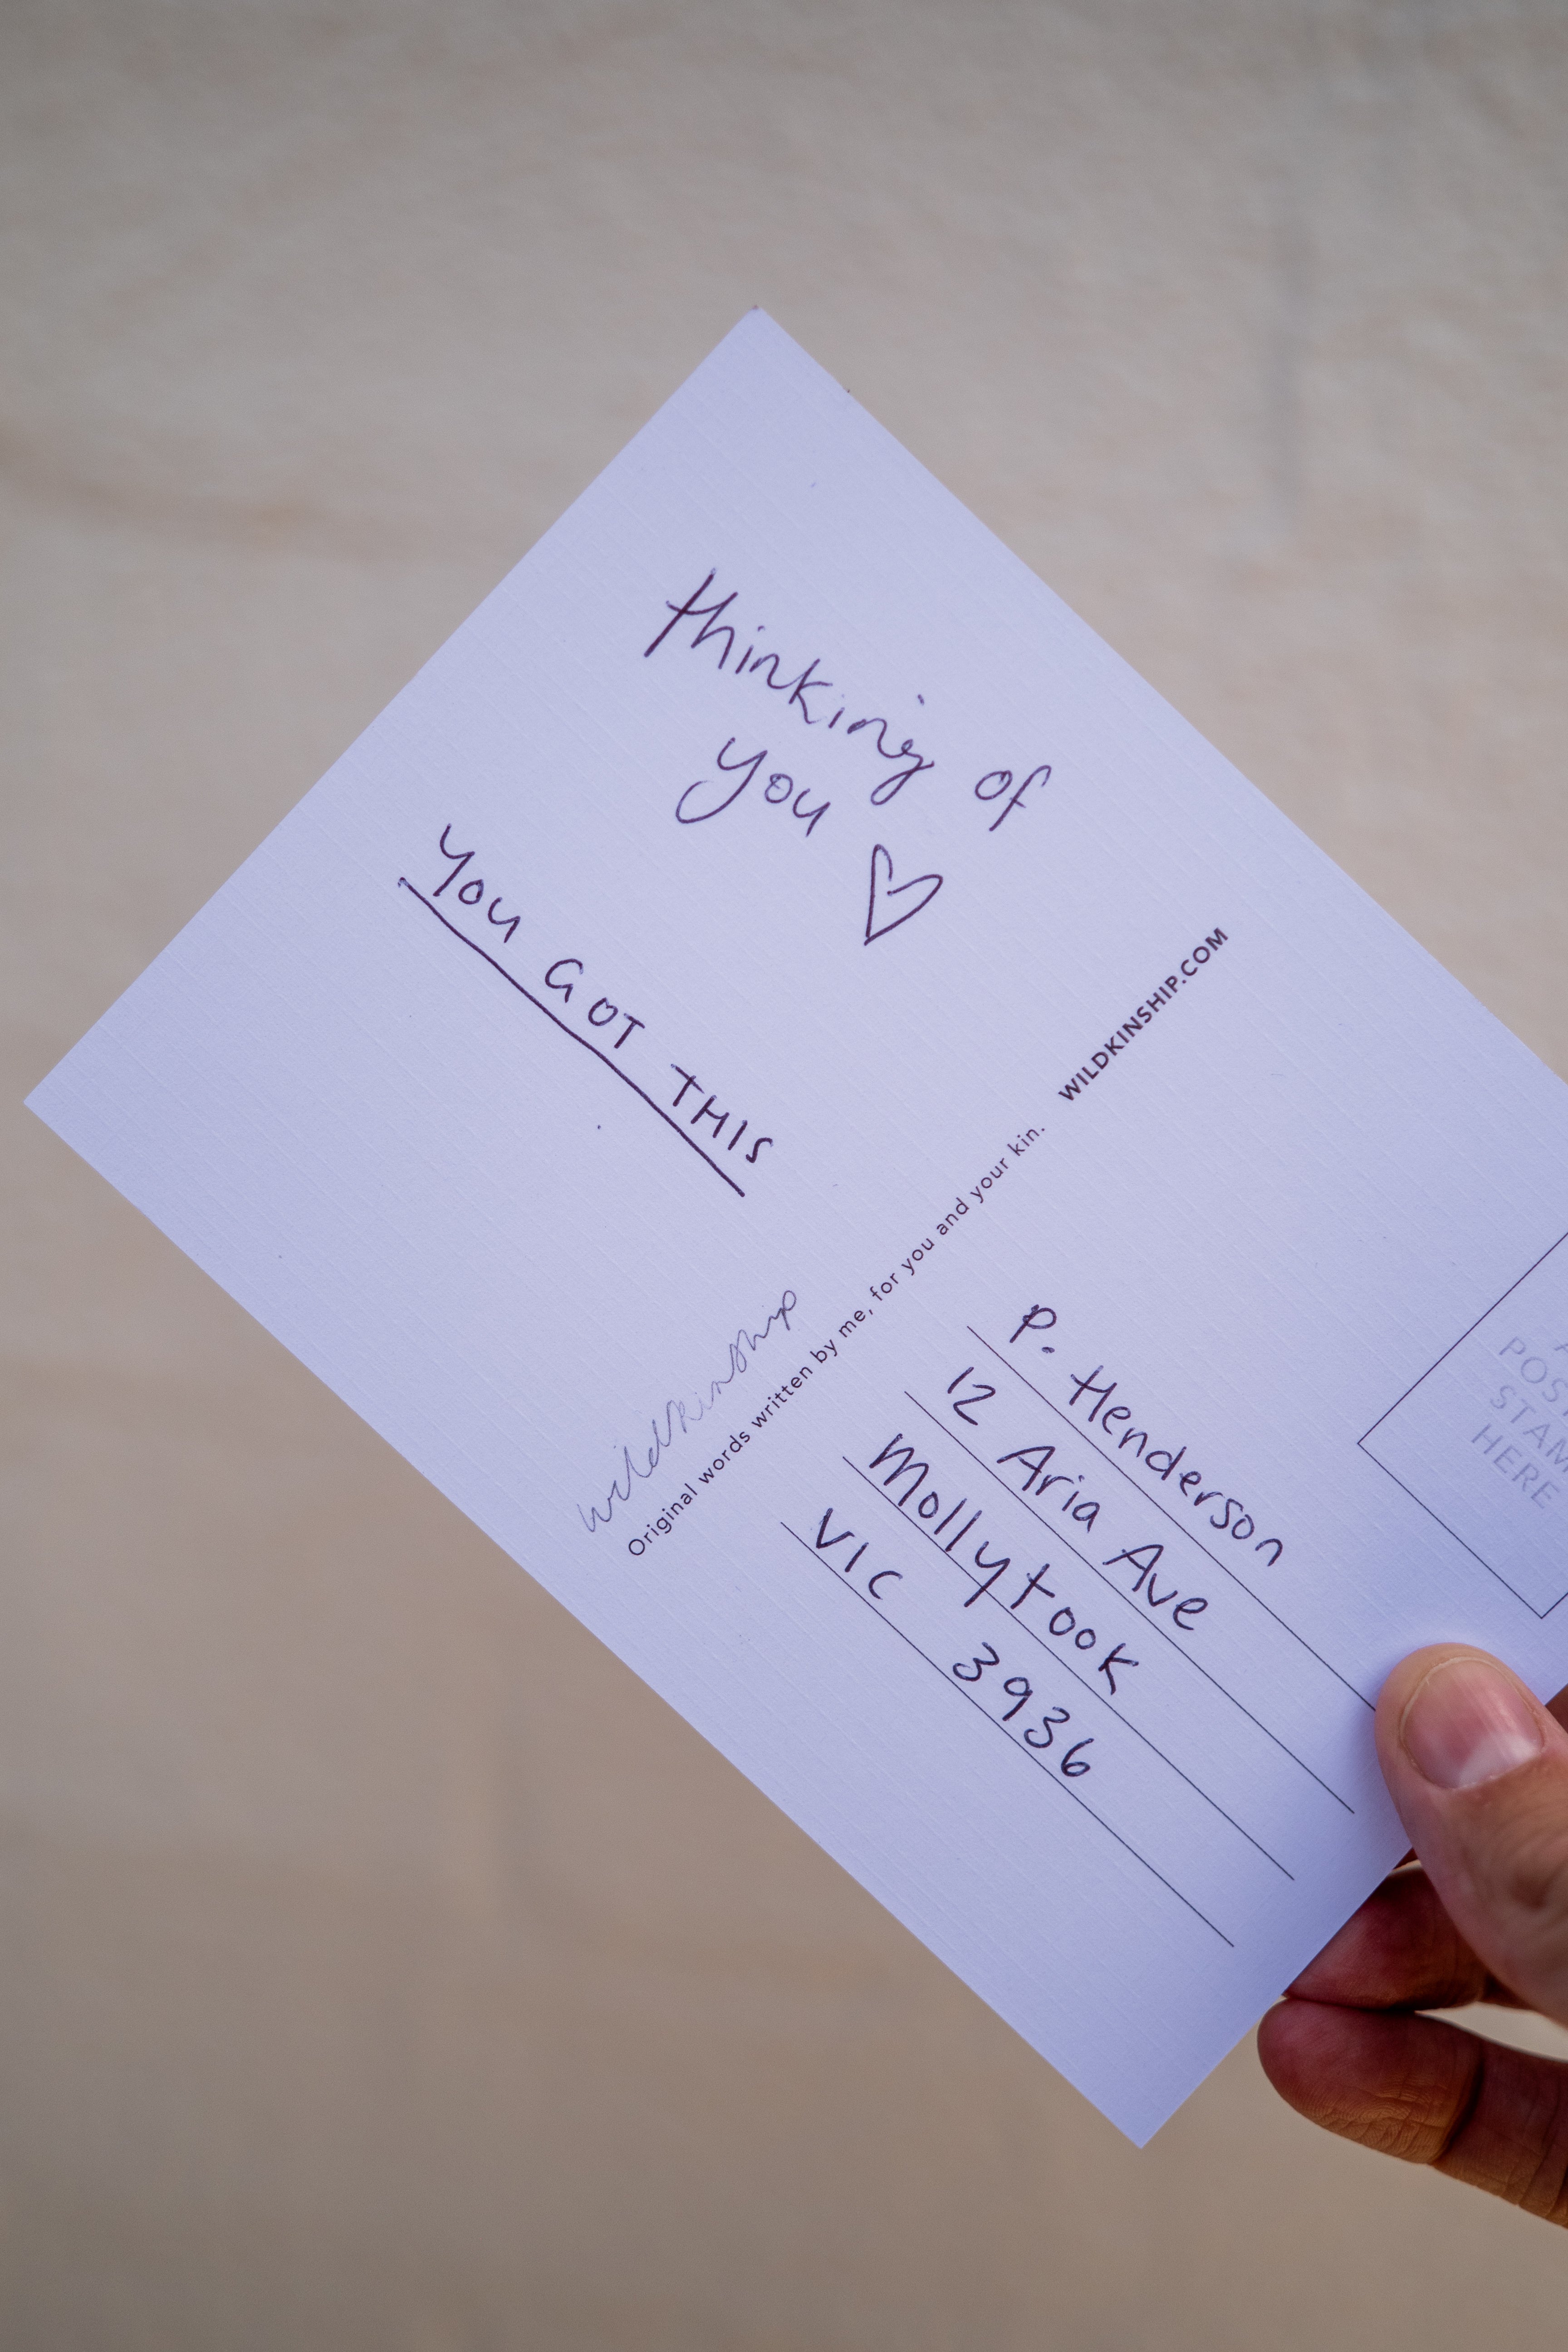 thinking of
you ♡
YOU GOT THIS
wildkinship
Original words written by me, for you and your kin. WILDKINSHIP.COM
P. Henderson
12 Aria Ave
Mollytook
VIC 3936
STAM
HERE